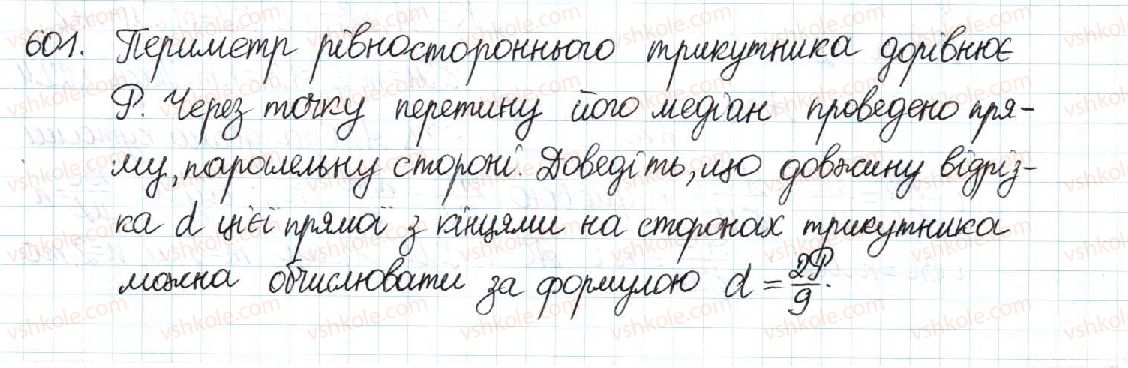 601. Периметр рівностороннього трикутника дорівнює
P. Через точку перетину його медіан проведено пря-
му, паралельну стороні. Доведіть, що довжину відріз-
ка d цієї прямої з кінцями на сторонах трикутника
можна обчислювати за формулою d = 2P/9.